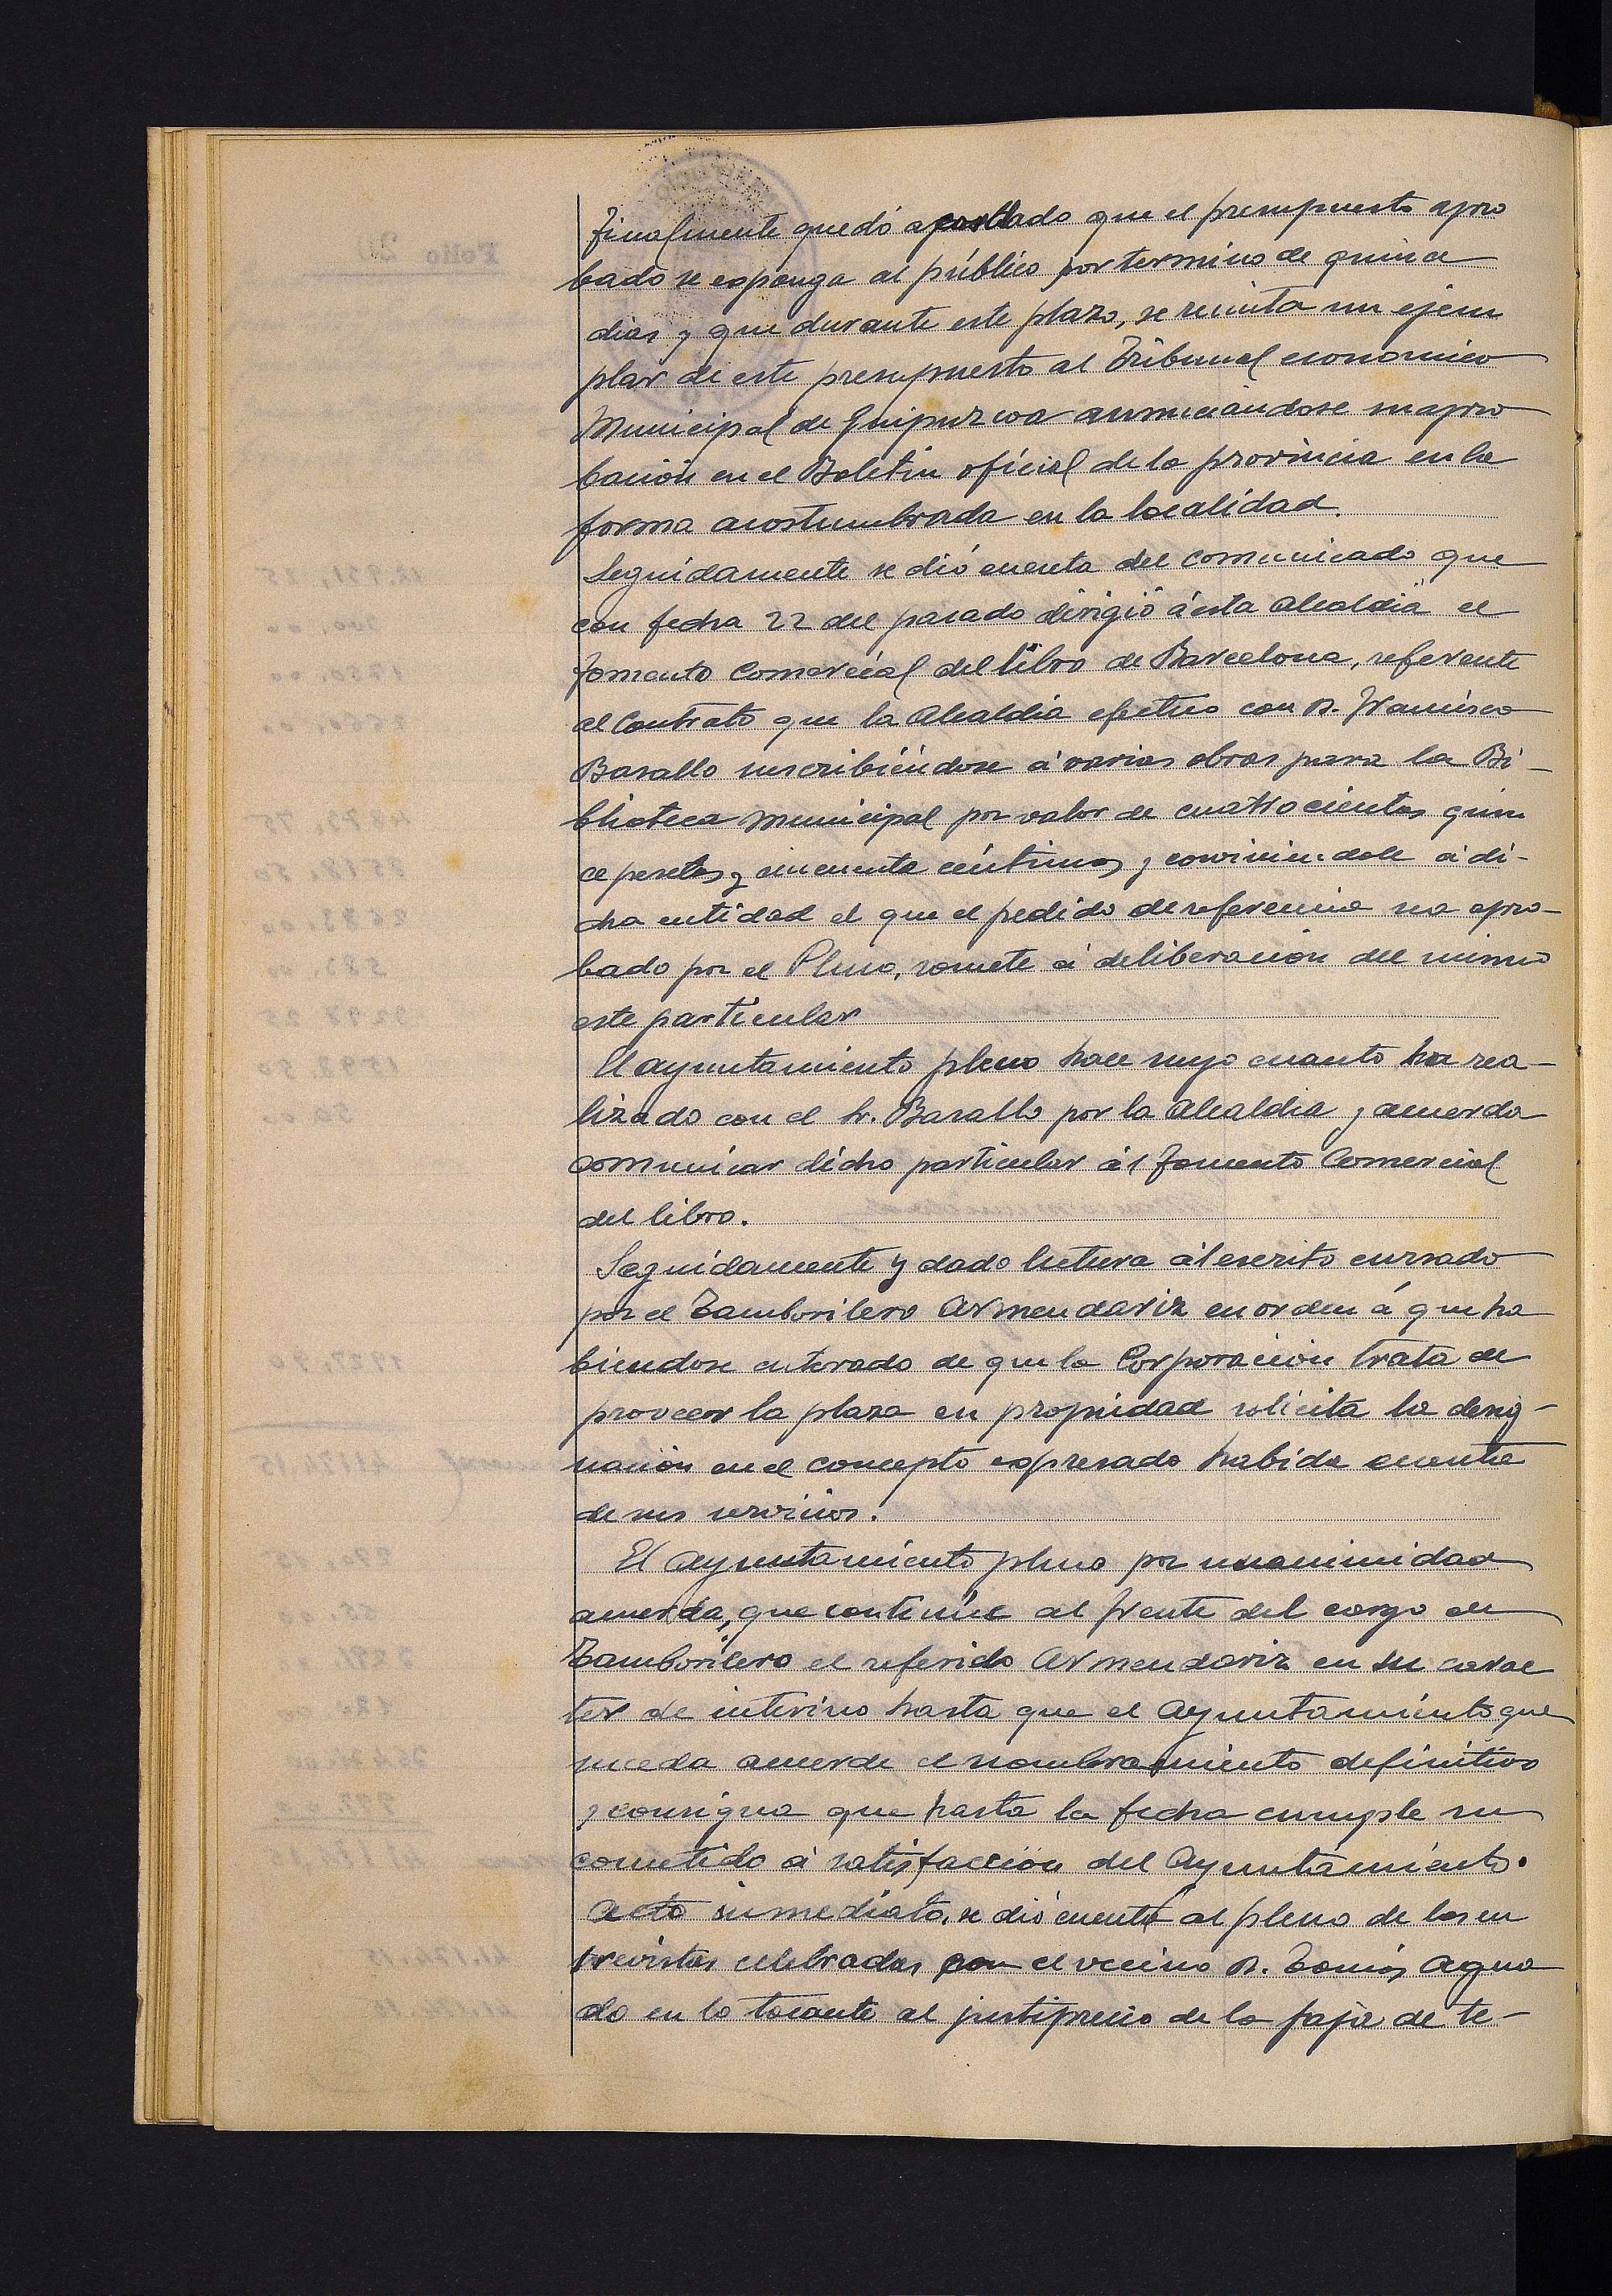 Finalmente quedó acordado que el presupuesto apro
bado se esponga al público por termino de quince
dias y que durante este plazo, se remita un ejem
plar de este presupuesto al Tribunal economico
Municipal de Guipuzcoa anunciandose su apro
bación en el Boletin oficial de la provincia en la
forma acostumbrada en la localidad.
Seguidamente se dió cuenta del comunicado que
con fecha 22 del pasado dirigió á esta Alcaldia el
Fomento Comercial del libro de Barcelona, referente
al Contrato que la Alcaldia efectuo con D. Francisco
Basallo suscribiéndose á varias obras para la Bi-
blioteca Municipal por valor de cuatrocientas quin
ce pesetas y cincuenta céntimos y conviniendole á di-
cha entidad el que el pedido de referencia sea apro-
bado por el Pleno, somete á deliberación del mismo
este particular
El Ayuntamiento pleno hace suyo cuanto ha rea-
lizado con el Sr. Basallo por la Alcaldia y acuerda
comunicar dicho particular ál Fomento Comercial
del libro.
Seguidamente y dado lectura ál escrito cursado
por el Tamborilero Armendariz en orden á que ha
biendose enterado de que la Corporación trata de
proveer la plaza en propiedad solicita la desig-
nación en el concepto espresado habida cuenta
de sus servicios.
El Ayuntamiento pleno por unanimidad
acuerda, que continúe al frente del cargo de
Tamborilero el referido Armendariz en su carac
ter de interino hasta que el Ayuntamiento que
suceda acuerde el nombramiento definitivo
y consigna que hasta la fecha cumple su
cometido á satisfacción del Ayuntamiento.
Acto inmediato, se dió cuenta al pleno de las en
trevistas celebradas con el vecino D. Tomás Agua
do en lo tocante al justiprecio de la faja de te-